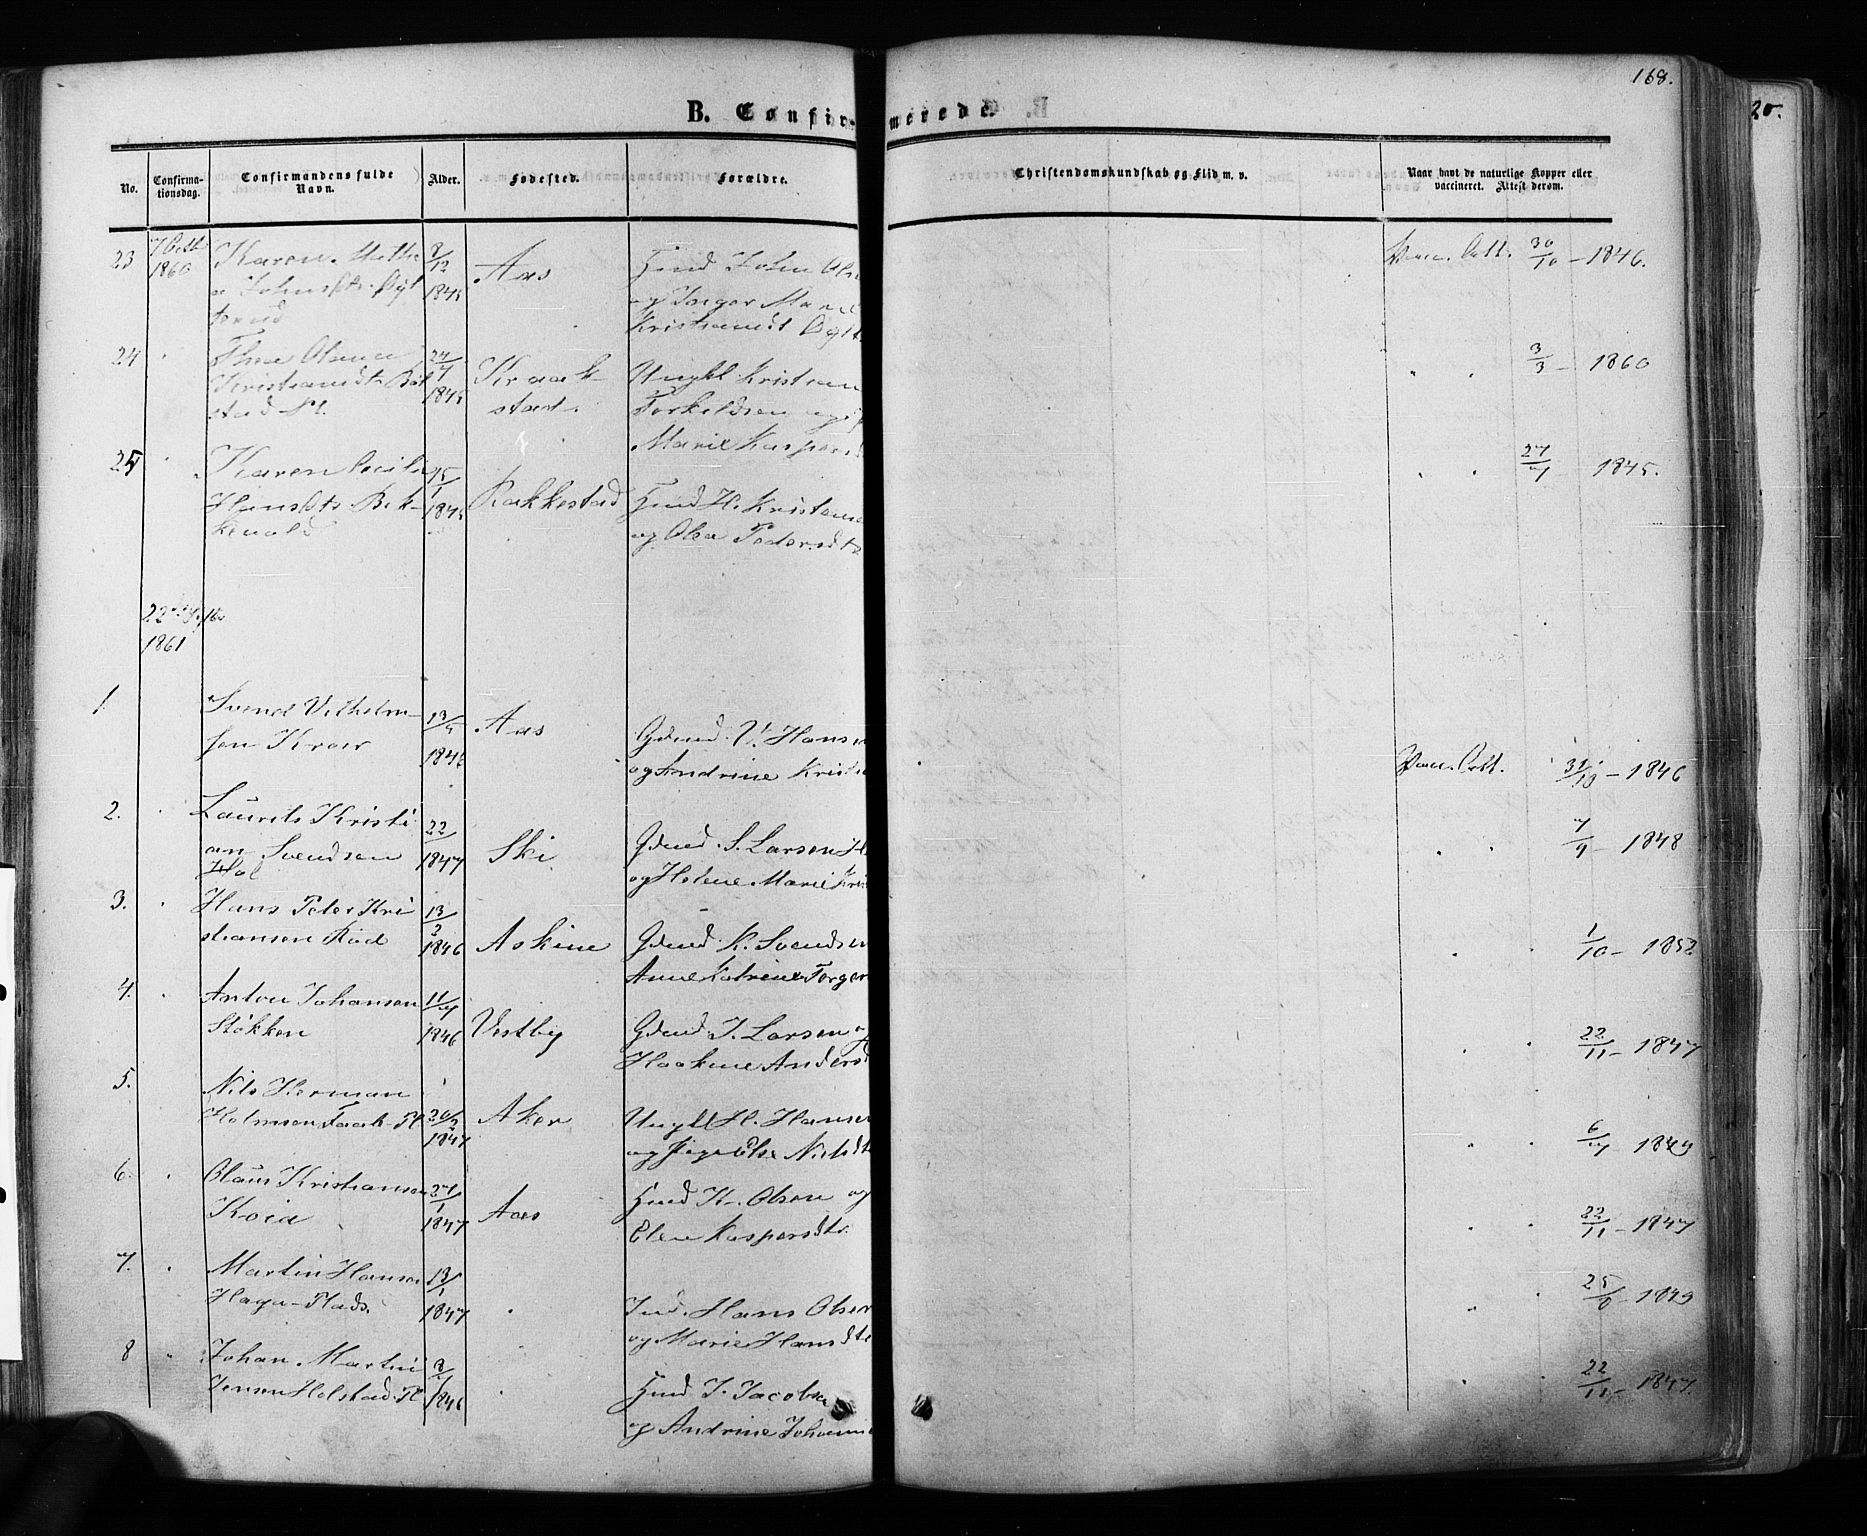 168.
20.
B. Confirmerede.
No.
Confirma-
tionsdag.
Confirmandens fulde
Navn.
Alder.
Fødested.
Forældre.
Christendomskundskab og Flid m. v.
Naar havt de naturlige Kopper eller
vaccineret. Attest derom.
23 7 Octb 1860
Karen Mathe
8/12 1845
Aas
Hmd John Ols
og Inger Mar
Kristiansdt
Vacc. Att. 30/10 - 1846.
24 "
Olava
Kristiansdt
stad Pl.
24/7 1845
Kraak-
stad.
Ungkl Kristian
Torkildsen og
Marie Kaspersd
" " 3/3 - 1860
25 "
Karen
Hansdt Bek-
kevold
15/1 1845
Rakkestad
Hmd H. Kristens
og Olea Pedersdt
" " 27/7 1845.
22de Septbr
1861
1.
Svend Vilhelm-
sen Kroer
13/5 1846
Aas
Gdmd. V. Hansen
og Andrine Krist
Vacc. Att. 31/10 - 1846
2. "
Laurits Kristi
an Svendsen
Hol
22/ 1847
Ski
Gdmd. S. Larsen H
og Helene Marie Kri
" " 7/9 - 1848
3. "
Hans Peter Kri
stiansen Rød
13/2 1846
Askim
Gdmd. K. Svendsen
Anne Katrine Torger
" " 1/10 - 1852
4. "
Anton Johansen
Støkken
11/7 1846
Vestby
Gdmd J. Larsen og
Haakine Andersd
" " 22/11 - 1847
5.
Nils Herman
Holmsen Pl
20/2 1847
Aker
Ungkl H. Hansen
og Pige Else Nielsdt
" " 6/7 1849
6. "
Olaus Kristiansen
Koia
27/1 1847
Aas
Hmd K. Olsen og
Elen Kaspersdtr.
" " 22/11 - 1847
7. "
Martin Hansen
Haga-Plads.
13/1 1847
"
Ind. Hans Olsen
og Marie Hansdtr
" " 25/8 - 1849
8 "
Johan Martin
Jensen Holstad Pl
8/ 1846
"
Hmd J. Jacobse
og Andrine Johanne
" " 22/11 - 1847.